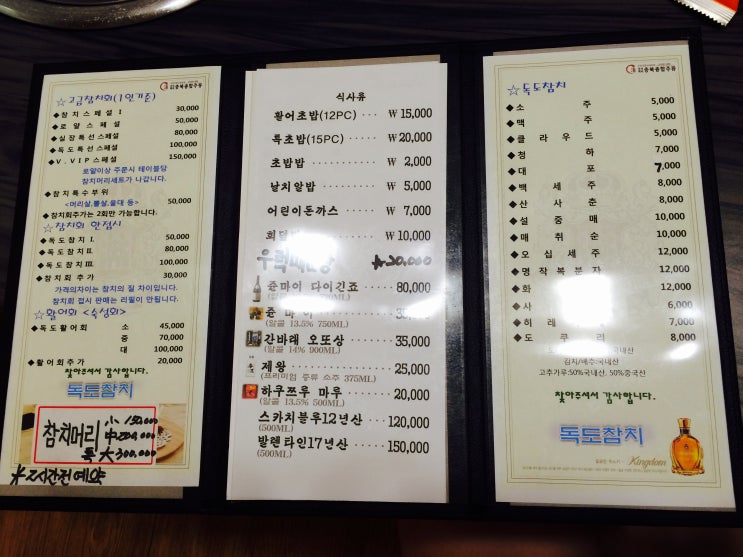 ☆고급참치회(1인기준)
◆참치스페셜1 30,000
◆로얄스페셜 50,000
◆실장특선스페셜 80,000
◆독도특선스페셜 100,000
◆V.VIP스페셜 150,000
로얄이상 주문시 테이블당
참치머리세트가 나갑니다.
◆참치특수부위 50,000
<머리살,뽈살,울대 등>
◆참치회추가는 2회만 가능합니다.
☆참치회 한접시
◆독도참치 I. 50,000
◆독도참치 II. 80,000
◆독도참치 III. 100,000
◆참치회 추가 30,000
가격의차이는 참치의 질 차이입니다.
참치회 접시 판매는 리필이 안됩니다.
☆활어회 <숙성회>
◆독도활어회 소 45,000
중 70,000
대 100,000
◆활어회추가 20,000
찾아주셔서 감사합니다.
독도참치
참치머리 小 150,000
中 200,000
특 大 300,000
* 2시간전 예약
식사류
활어초밥(12PC) ₩ 15,000
특초밥(15PC) ₩ 20,000
초밥밥 ₩ 2,000
날치알밥 ₩ 5,000
어린이돈까스 ₩ 7,000
회덮밥 ₩ 10,000
20,000
쥰마이 다이긴죠 80,000
쥰마이 35,000
(알콜 13.5% 750ML)
간바래 오또상 35,000
(알콜 14% 900ML)
제왕 25,000
(프리미엄 증류 소주 375ML)
하쿠쯔루 마루 20,000
(알콜 13.5% 500ML)
스카치블루12년산 120,000
(500ML)
발렌타인17년산 150,000
(500ML)
☆독도참치
◆소주 5,000
◆맥주 5,000
◆클라우드 5,000
◆청하 7,000
◆대포 7,000
◆백세주 8,000
◆산사춘 8,000
◆설중매 10,000
◆매취순 10,000
◆오십세주 12,000
◆명작복분자 12,000
◆화 12,000
◆사 6,000
◆히레 7,000
◆도쿠리 8,000
김치/배추:국내산
고추가루:50%국내산, 50%중국산
찾아주셔서 감사합니다.
독도참치
Kingdom